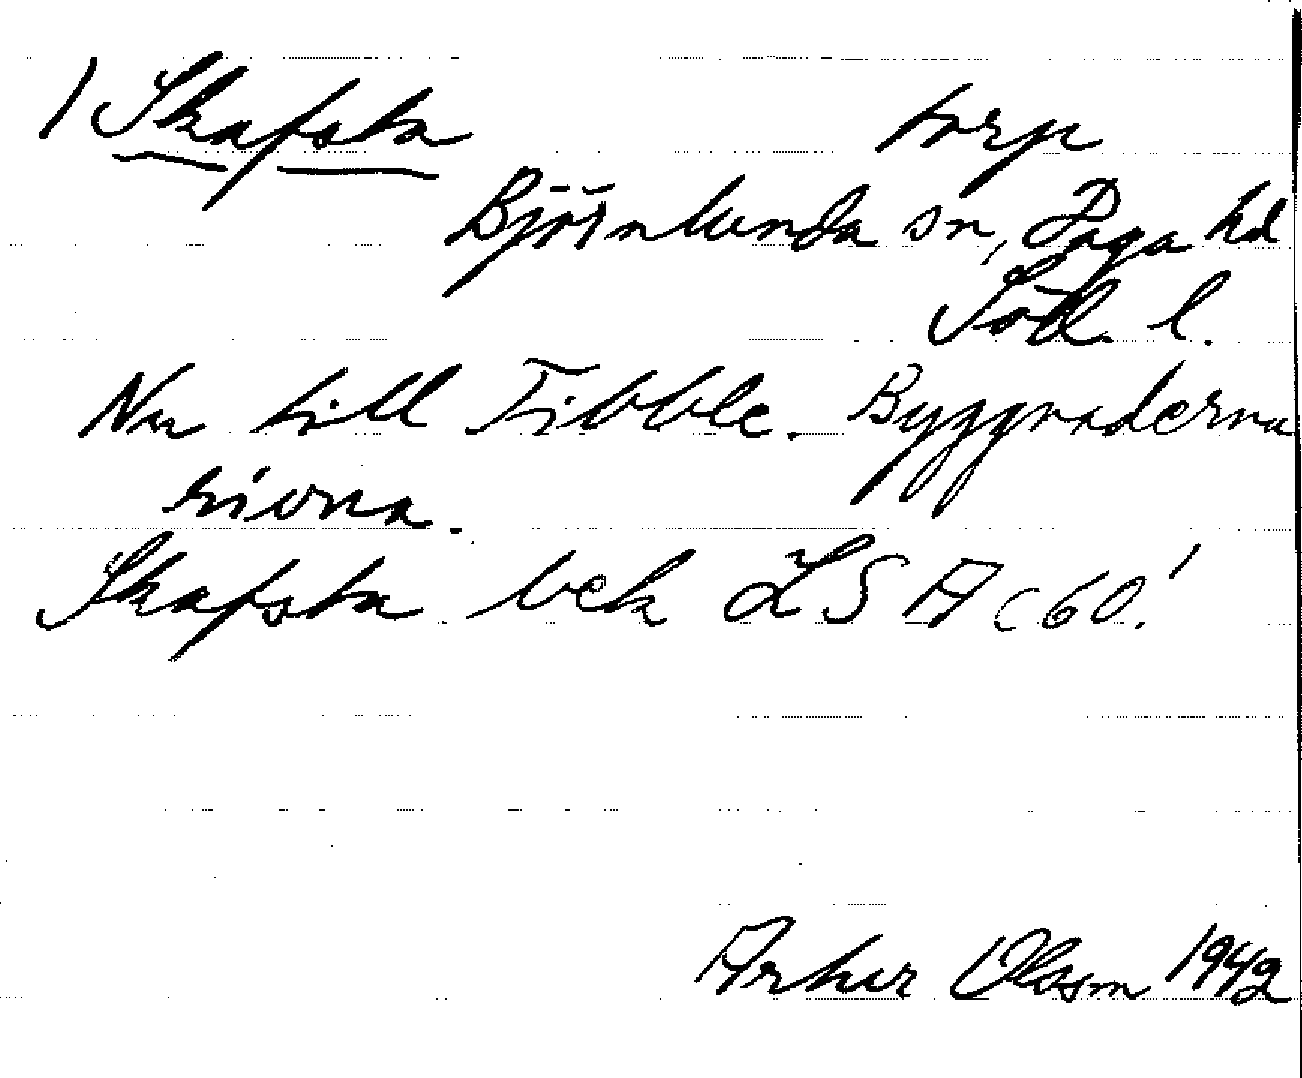 / Skafsta torp
Björnlunda sn, Daga hd
Södl. l.
Nu till Tibble. Byggnaderna
rivna.
Skafsta bek LSA C 60!
Arhur Olsson 1942